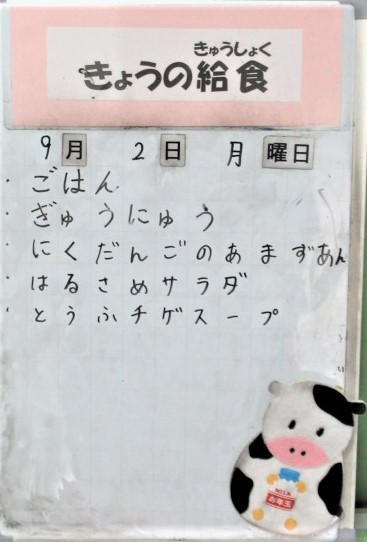 きゅうしょく
きょうの給食
9月 2日 月曜日
・ごはん
・ぎゅうにゅう
・にくだんごのあまずあん
・はるさめサラダ
・とうふチゲスープ
MILK
お年玉